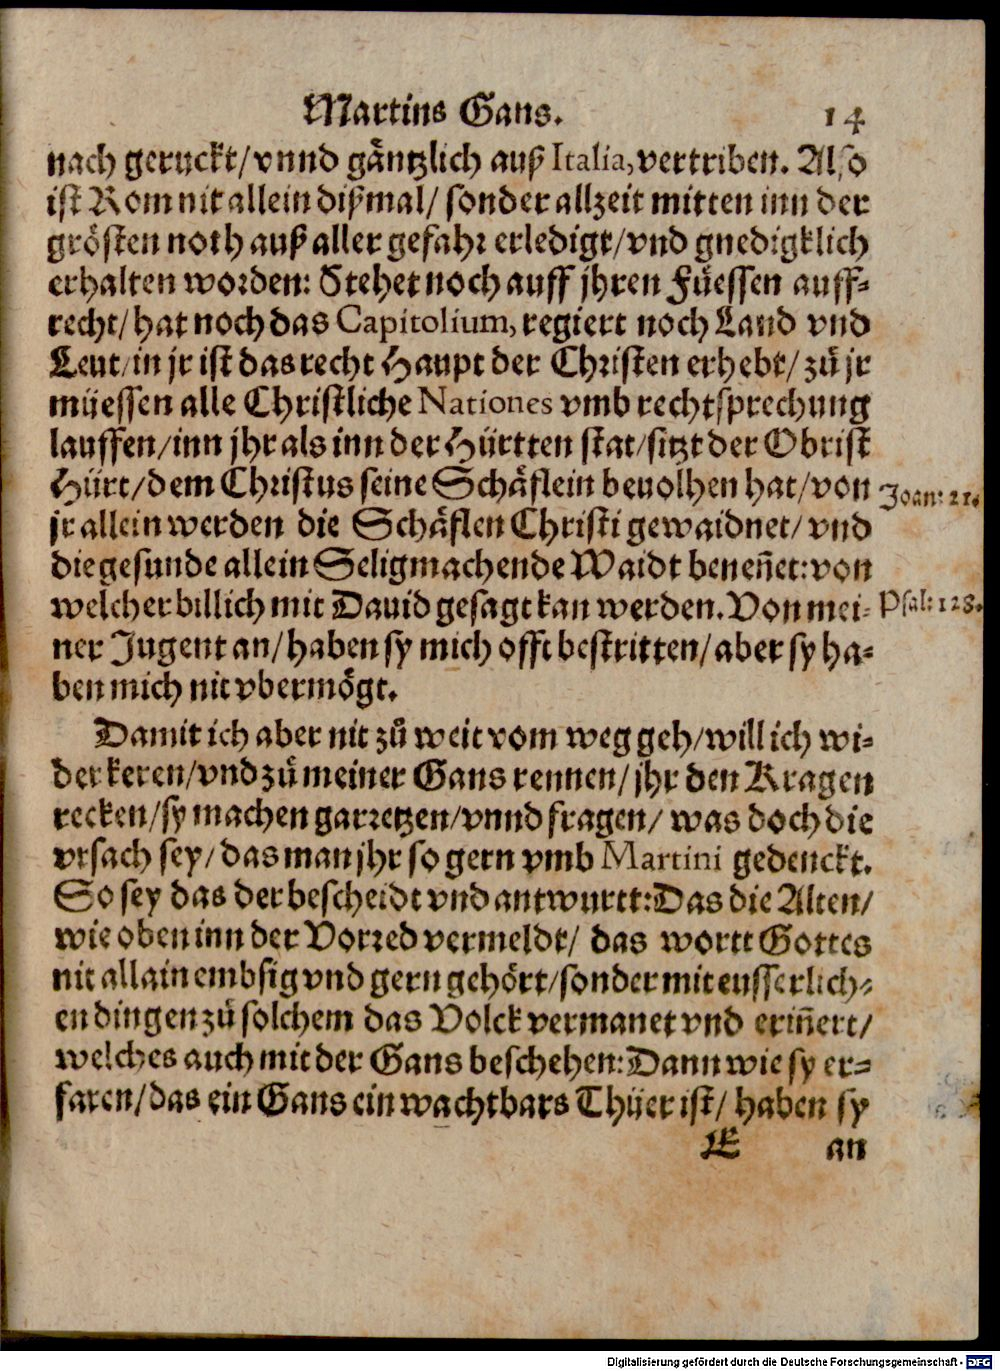 Martins Gans. 14
nach geruckt/vnnd gäntzlich auß Italia, vertriben. Also
ist Rom nit allein dißmal/ sonder allzeit mitten inn der
grösten noth auß aller gefahr erledigt/vnd gnedigklich
erhalten worden: Stehet noch auff jhren Füessen auff-
recht/ hat noch das Capitolium, regiert noch Land vnd
Leut/in jr ist das recht Haupt der Christen erhebt/ zů jr
müessen alle Christliche Nationes vmb rechtsprechung
lauffen/inn jhr als inn der Hürtten stat/sitzt der Obrist
Hürt/dem Christus seine Schäflein beuolhen hat/von
Joan: 21.
jr allein werden die Schäflen Christi gewaidnet/ vnd
die gesunde allein Seligmachende Waidt beneñet:von
welcher billich mit Dauid gesagt kan werden. Von mei-
Psal: 128.
ner Jugent an/ haben sy mich offt bestritten/ aber sy ha-
ben mich nit vbermögt.
Damit ich aber nit zů weit vom weg geh/will ich wi-
der keren/vnd zů meiner Gans rennen/ jhr den Kragen
recken/sy machen garretzen/vnnd fragen/ was doch die
vrsach sey/ das man jhr so gern vmb Martini gedenckt.
So sey das der bescheidt vnd antwurtt:Das die Alten/
wie oben inn der Vorred vermeldt/ das wortt Gottes
nit allain embsig vnd gern gehört/sonder mit eusserlich-
en dingen zů solchem das Volck vermanet vnd eriñert/
welches auch mit der Gans beschehen:Dann wie sy er-
faren/das ein Gans ein wachtbars Thüer ist/ haben sy
E an
Digitalisierung gefördert durch die Deutsche Forschungsgemeinschaft - DFG